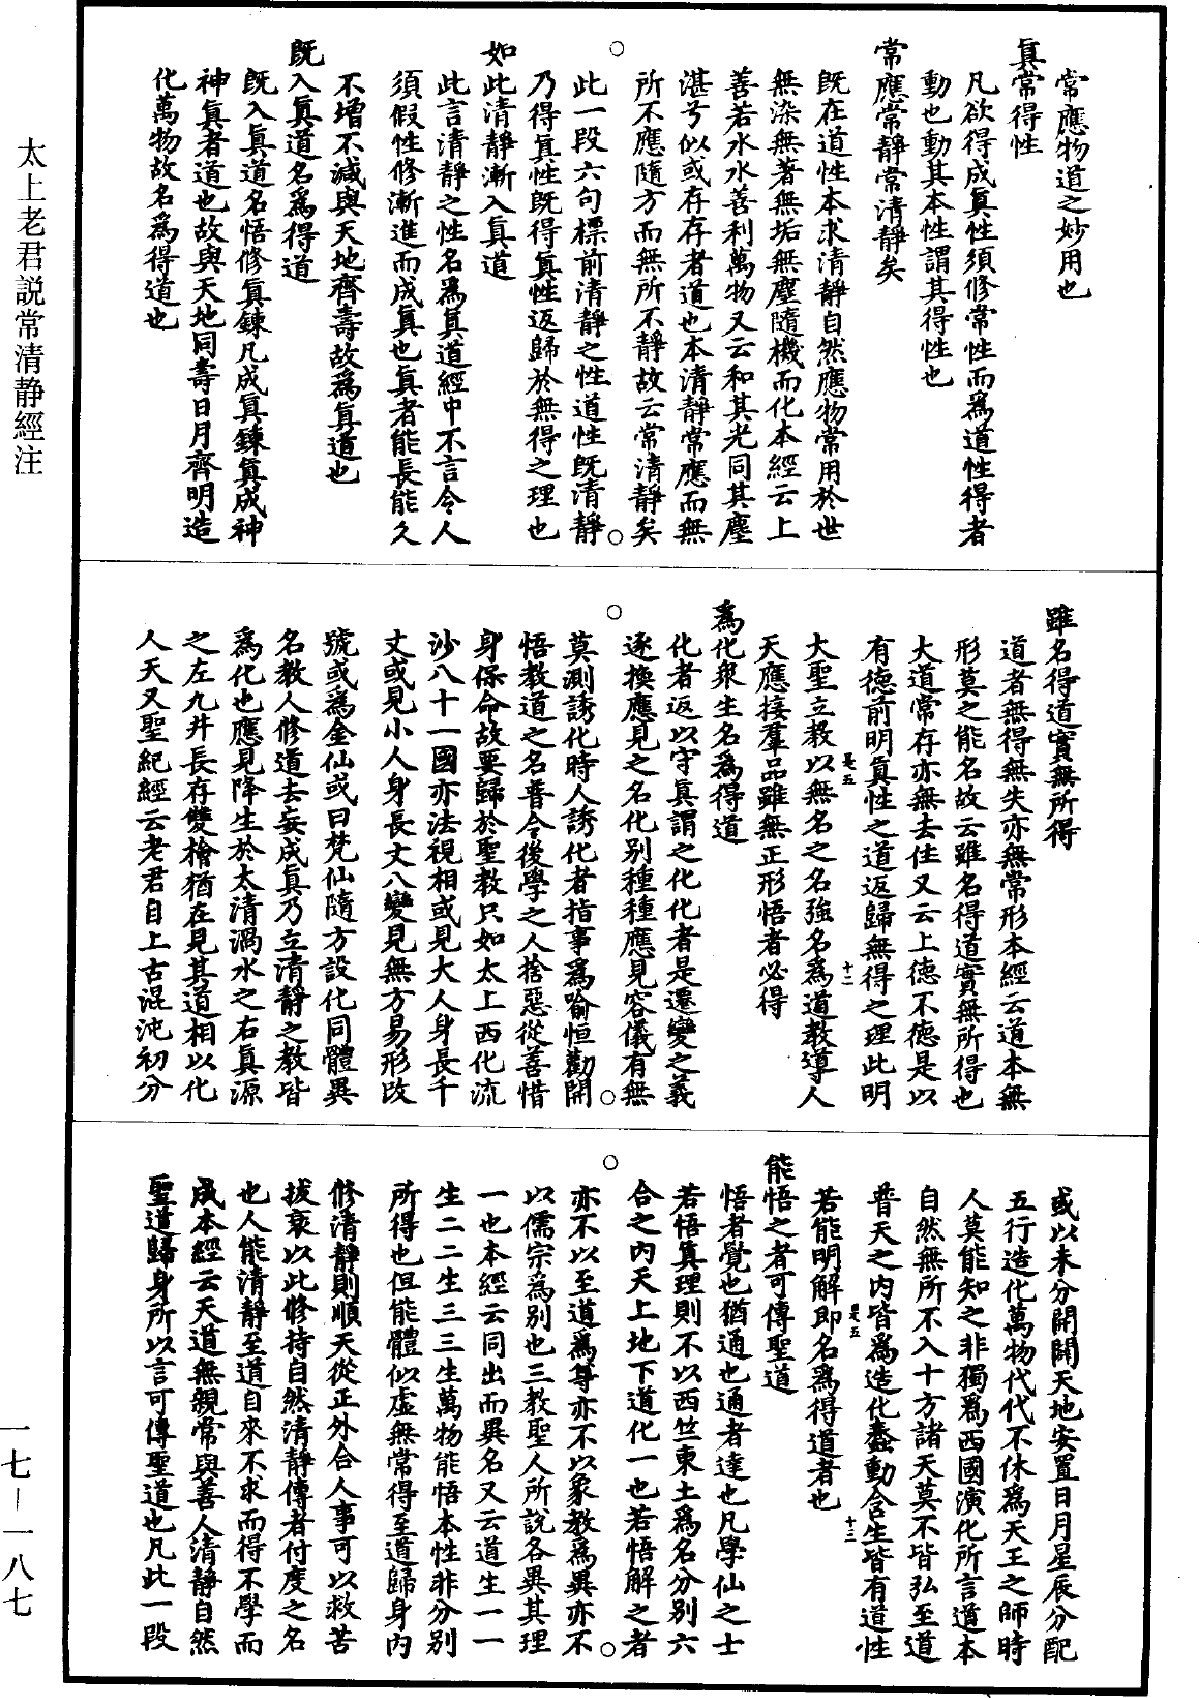 常應物道之妙用也
真常得性
凡欲得成真性須修常性而為道性得者
動也動其本性謂其得性也
常應常靜常清靜矣
既在道性本求清靜自然應物常用於世
無染無著無垢無塵隨機而化本經云上
善若水水善利萬物又云和其光同其塵
湛兮似或存存者道也本清靜常應而無
所不應隨方而無所不靜故云常清靜矣
○
○
此一段六句標前清靜之性道性既清靜
乃得真性既得真性返歸於無得之理也
如此清靜漸入真道
此言清靜之性名為真道經中不言令人
須假性修漸進而成真也真者能長能久
不增不減與天地齊壽故為真道也
既入真道名為得道
既入真道名悟修真鍊凡成真鍊真成神
神真者道也故與天地同壽日月齊明造
化萬物故名為得道也
雖名得道實無所得
道者無得無失亦無常形本經云道本無
形莫之能名故云雖名得道實無所得也
大道常存亦無去住又云上德不德是以
有德前明真性之道返歸無得之理此明
是五
十二
大聖立教以無名之名強名為道教導人
天應接羣品雖無正形悟者必得
為化眾生名為得道
化者返以守真謂之化化者是遷變之義
逐換應見之名化別種種應見容儀有無
○
○
莫測誘化時人誘化者指事為喻恒勸開
悟教道之名普令後學之人捨惡從善惜
身保命故要歸於聖教只如太上西化流
沙八十一國亦法視相或見大人身長千
丈或見小人身長丈八變見無方易形改
號或為金仙或曰梵仙隨方設化同體異
名教人修道去妄成真乃立清靜之教皆
為化也應見降生於太清渦水之右真源
之左九井長存雙檜猶在見其道相以化
人天又聖紀經云老君自上古混沌初分
或以未分開闢天地安置日月星辰分配
五行造化萬物代代不休為天王之師時
人莫能知之非獨為西國演化所言道本
自然無所不入十方諸天莫不皆弘至道
普天之內皆為造化蠢動含生皆有道性
是五
十三
若能明解即名為得道者也
能悟之者可傳聖道
悟者覺也猶通也通者達也凡學仙之士
若悟真理則不以西竺東土為名分別六
合之內天上地下道化一也若悟解之者
○
○
亦不以至道為尊亦不以象教為異亦不
以儒宗為別也三教聖人所說各異其理
一也本經云同出而異名又云道生一一
生二二生三三生萬物能悟本性非分別
所得也但能體似虛無常得至道歸身內
修清靜則順天從正外合人事可以救苦
拔衰以此修持自然清靜傳者付度之名
也人能清靜至道自來不求而得不學而
成本經云天道無親常與善人清靜自然
聖道歸身所以言可傳聖道也凡此一段
太上老君説常清静經注
一七－一八七